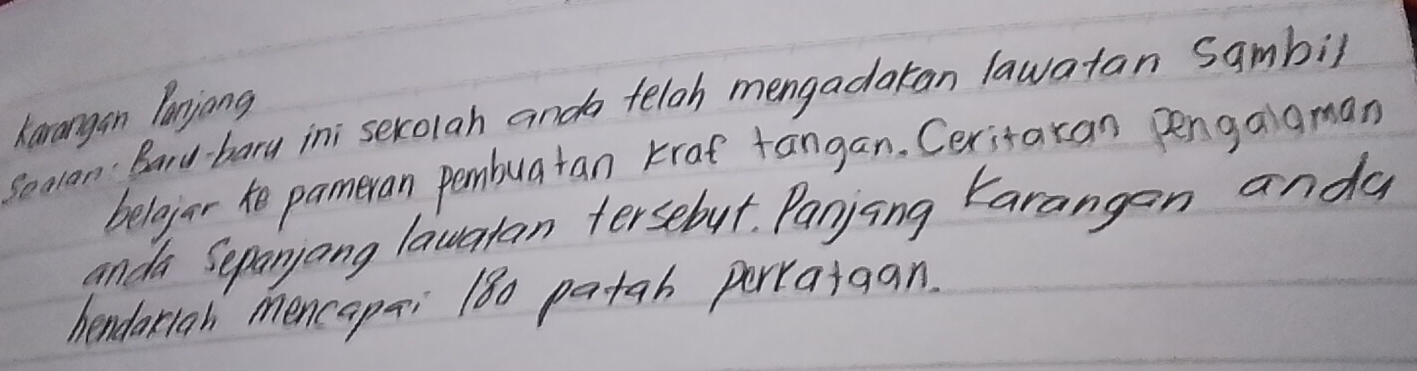 Karangan Panjang
Soalan: Baru-baru ini sekolah anda telah mengadakan lawatan sambil
belajar ke pameran pembuatan kraf tangan. Ceritakan pengalaman
anda sepanjang lawatan tersebut. Panjang karangan anda
hendaklah mencapai 180 patah perkataan.